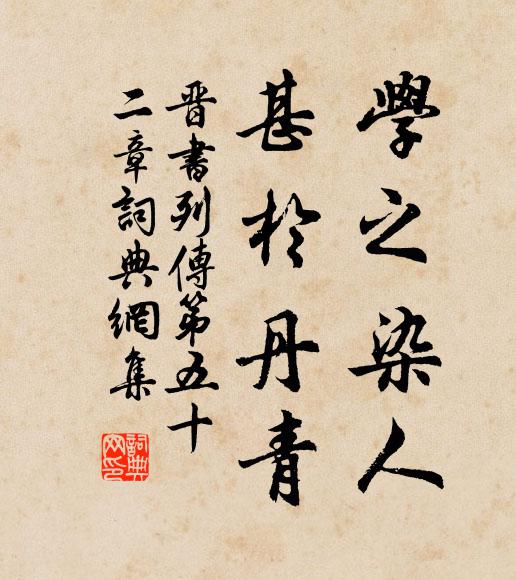 學之染人
甚於丹青
晉書列傳第五十
二章詞典網集
詞典
网印